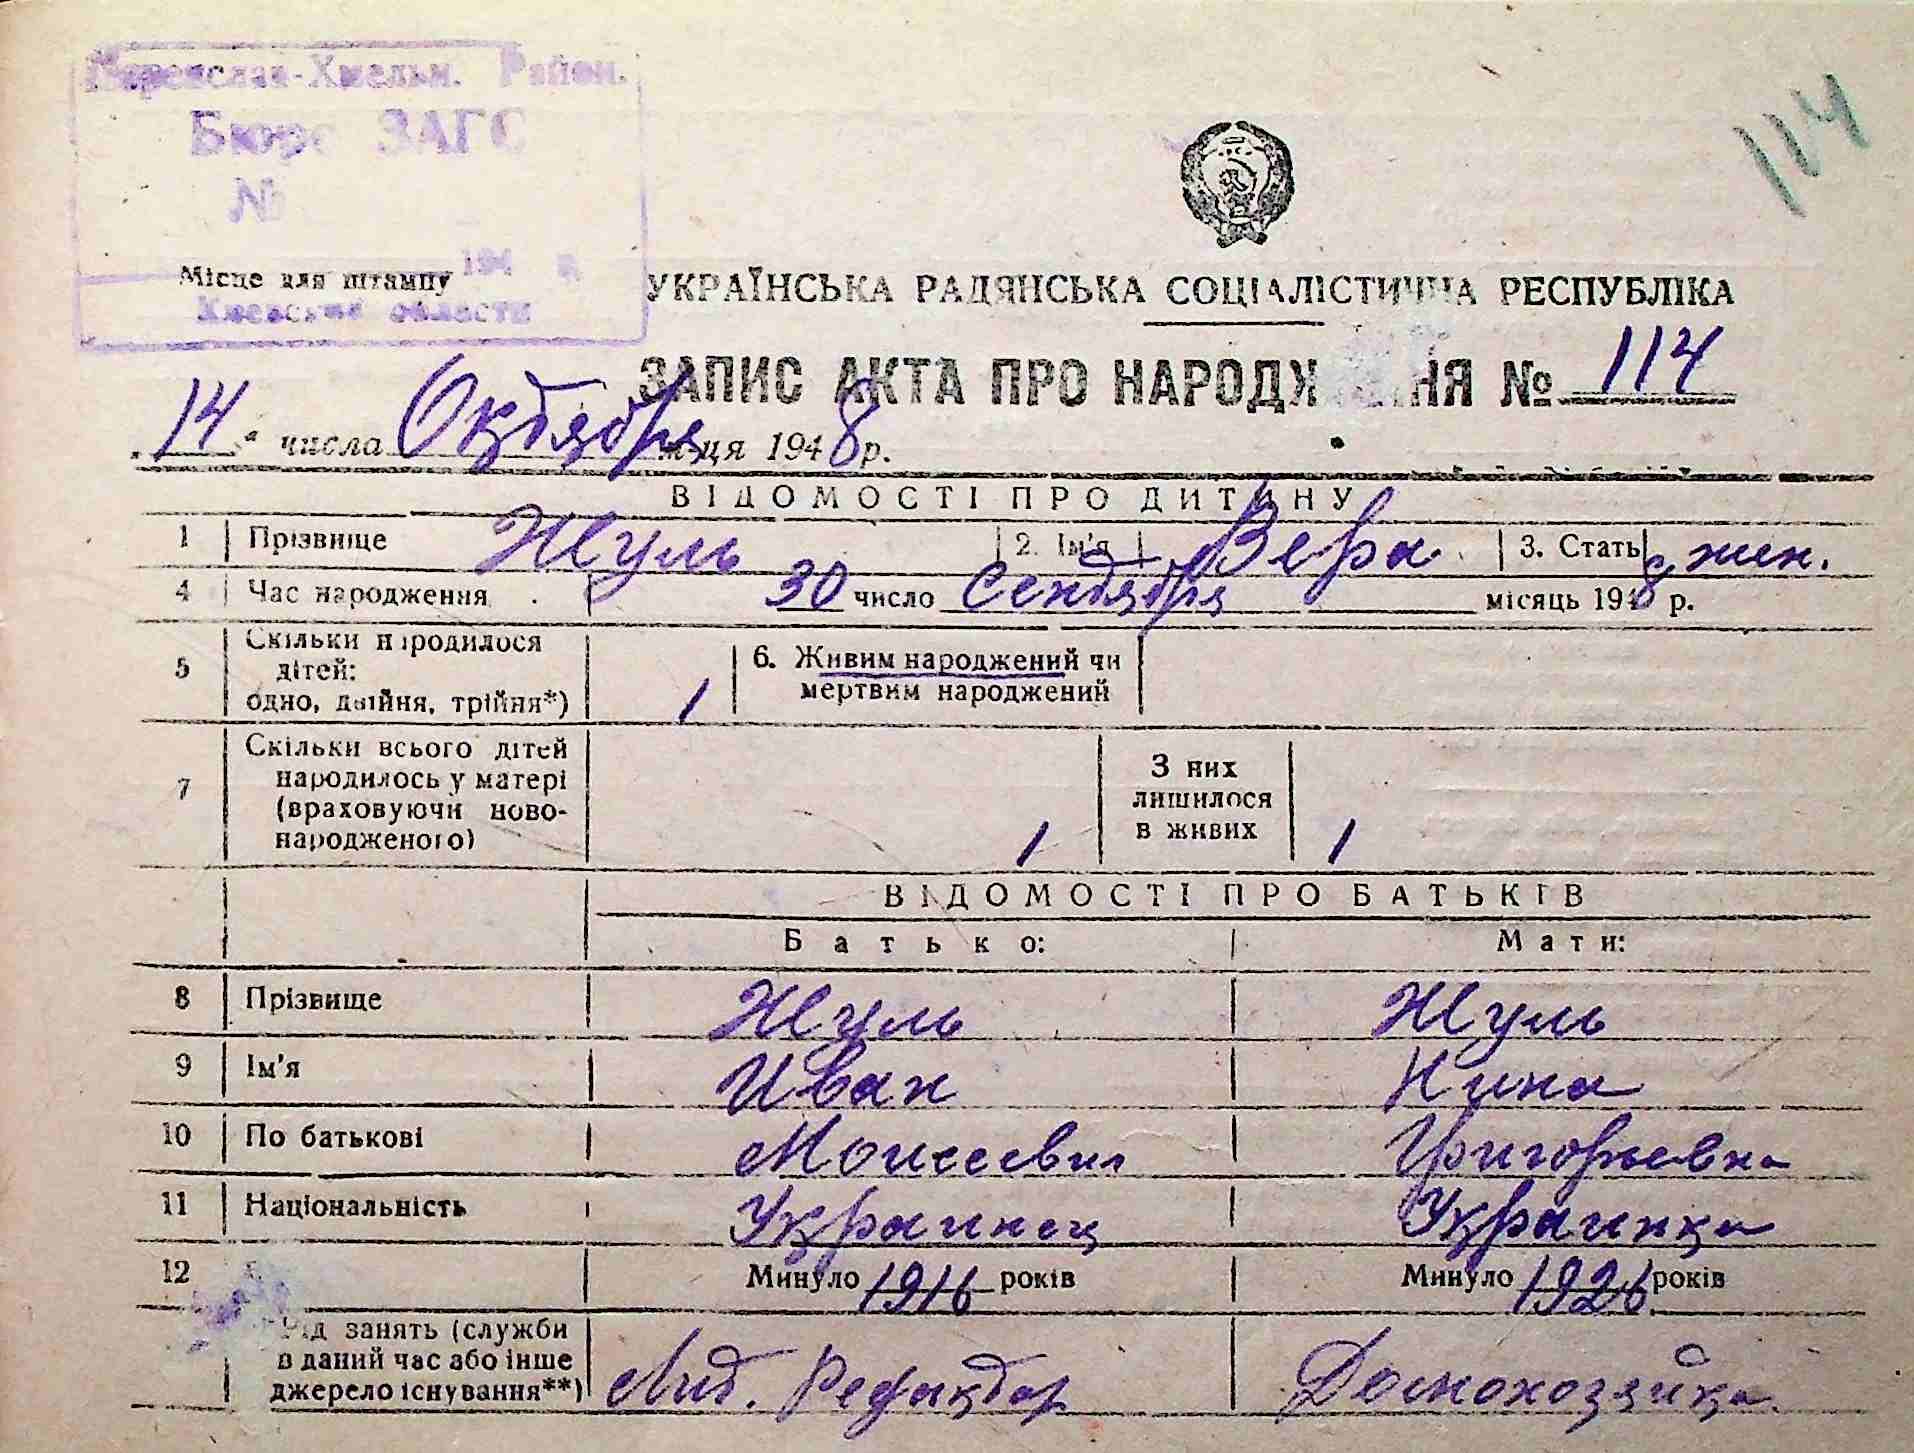 Переяслав-Хмельн. Район.
Бюро ЗАГС
№
194 г.
Місце для штампу
Киевской области
114
УКРАЇНСЬКА РАДЯНСЬКА СОЦІАЛІСТИЧНА РЕСПУБЛІКА
ЗАПИС АКТА ПРО НАРОДЖЕННЯ № 114
„14“ числа Октября м-ця 1948 р.
ВІДОМОСТІ ПРО ДИТИНУ
1 Прізвище Жуль 2. Ім'я Вера 3. Стать жен.
4 Час народження 30 число Сентября місяць 1948 р.
5 Скільки народилося
дітей:
одно, двійня, трійня*) 1
6. Живим народжений чи
мертвим народжений
7 Скільки всього дітей
народилось у матері
(враховуючи ново-
народженого) 1
З них
лишилося
в живих 1
ВІДОМОСТІ ПРО БАТЬКІВ
Батько: Мати:
8 Прізвище Жуль Жуль
9 Ім'я Иван Нина
10 По батькові Моисеевич Григорьевна
11 Національність Украинец Украинка
12 Минуло 1916 років Минуло 1926 років
Рід занять (служби
в даний час або інше
джерело існування**) Лит. Редактор Домохозяйка.